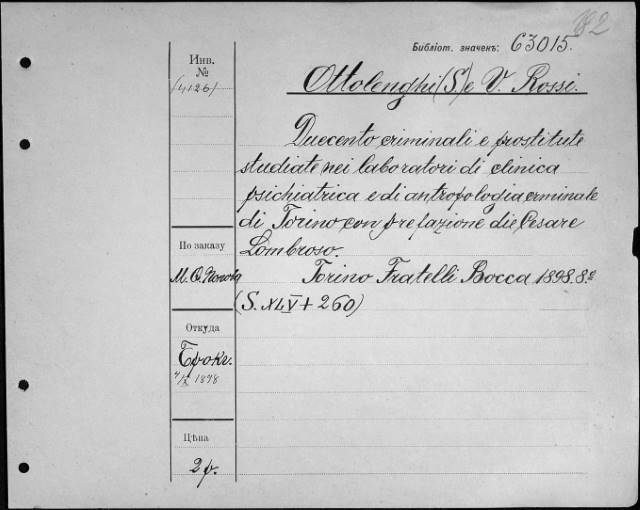 Библіот. значекъ: 63015.
Инв.
№
(4126)
Ottolenghi (S.) e V. Rossi.
Duecento criminali e prostitute
studiate nei laboratori di clinica
psichiatrica e di antropologia criminale
di Torino con prefazione die Cesare
Lombroso.
Torino Fratelli Bocca 1898. 8.º
(S. XLV + 260)
По заказу
Откуда
Брокг.
Цѣна
2 р.